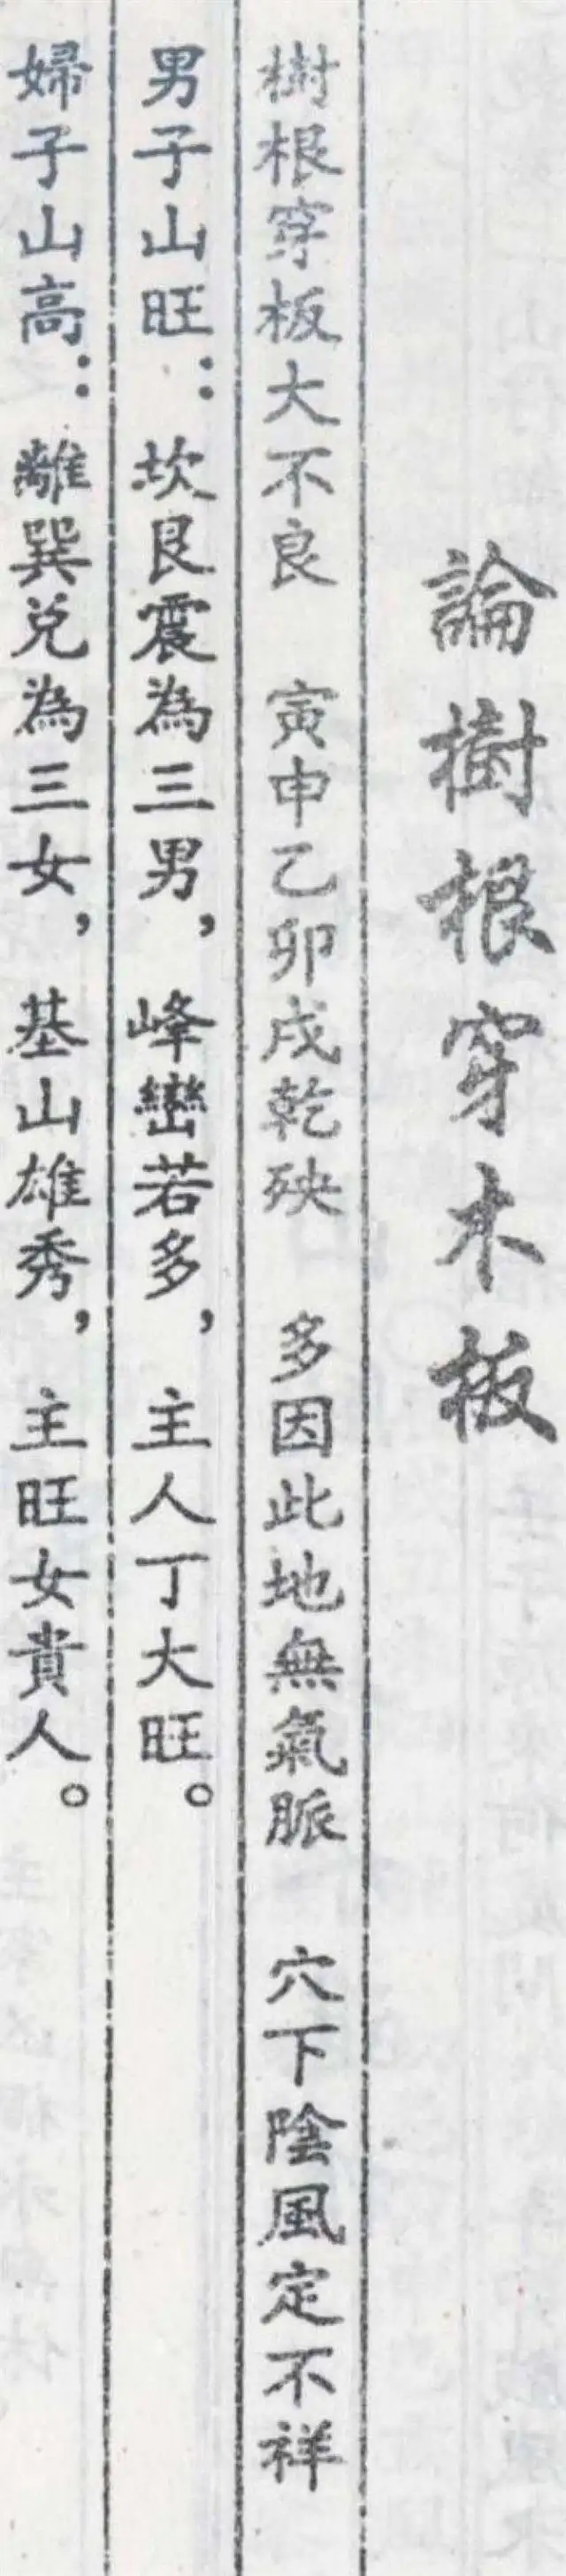 論樹根穿木板
樹根穿板大不良　寅申乙卯戌乾殃　多因此地無氣脈　穴下陰風定不祥
男子山旺：坎艮震為三男，峰巒若多，主人丁大旺。
婦子山高：離巽兌為三女，基山雄秀，主旺女貴人。